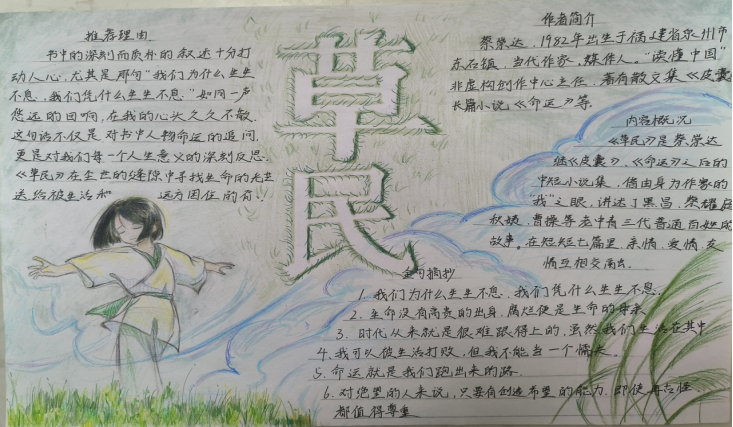 推荐理由
书中的深刻而质朴的叙述十分打
动人心,尤其是那句“我们为什么生生
不息,我们凭什么生生不息”如同一声
悠远的回响,在我的心头久久不散
这句话不仅是对书中人物命运的追问
更是对我们每一个人生意义的深刻反思.
《草民》在尘世的缝隙中寻找生命的光芒
送给被生活和 远方困住的有.
草民
作者简介
蔡崇达,1982年出生于福建省泉州市
东石镇,当代作家,媒体人。“读懂中国”
非虚构创作中心主任,著有散文集《皮囊》
长篇小说《命运》等.
内容概况
《草民》是蔡崇达
继《皮囊》,《命运》之后的
中短小说集,借由身为作家的
“我”之眼,讲述了黑昌,蔡耀庭
秋姨,曹操等老中青三代普通百姓的
故事。在短短七篇里,亲情,爱情,友
情互相交
金句摘抄
1.我们为什么生生不息,我们凭什么生生不息.
2.生命没有高贵的出身,腐烂便是生命的母亲
3.时代从来就是很难跟得上的,虽然我们生活在其中
4.我可以被生活打败,但我不能当一个懦夫.
5.命运就是我们跑出来的路.
6.对绝望的人来说,只要有创造希望的能力,即使再古怪.
都值得尊重